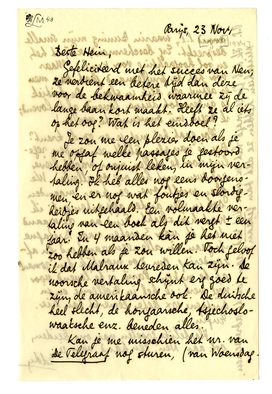 Parijs, 23 Nov.
Beste Hein,
Gefeliciteerd met het succes van Nen;
ze verdient een betere tijd dan deze
voor de bekwaamheid waarmee zij de
lange baan kort maakt. Heeft ze al iets
op het oog? Wat is het einddoel?
Je zou me een plezier doen als je
me opgaf welke passages je gestoord
hebben, of onjuist leken, in mijn ver-
taling. Ik heb alles nog eens doorgeno-
men en er nog wat foutjes en slordig-
heidjes uitgehaald. Een volmaakte ver-
taling van een boek als dit vergt ± een
jaar. In 4 maanden kan je het niet
zoo hebben als je zou willen. Toch geloof
il dat Malraux tevreden kan zijn. De
noorsche vertaling schijnt erg goed te
zijn, de amerikaansche ook. De duitsche
heel slecht, de hongaarsche, tsjechoslo-
waaksche enz. beneden alles.
Kan je me misschien het nr. van
de Telegraaf nog sturen, (van Woensdag-